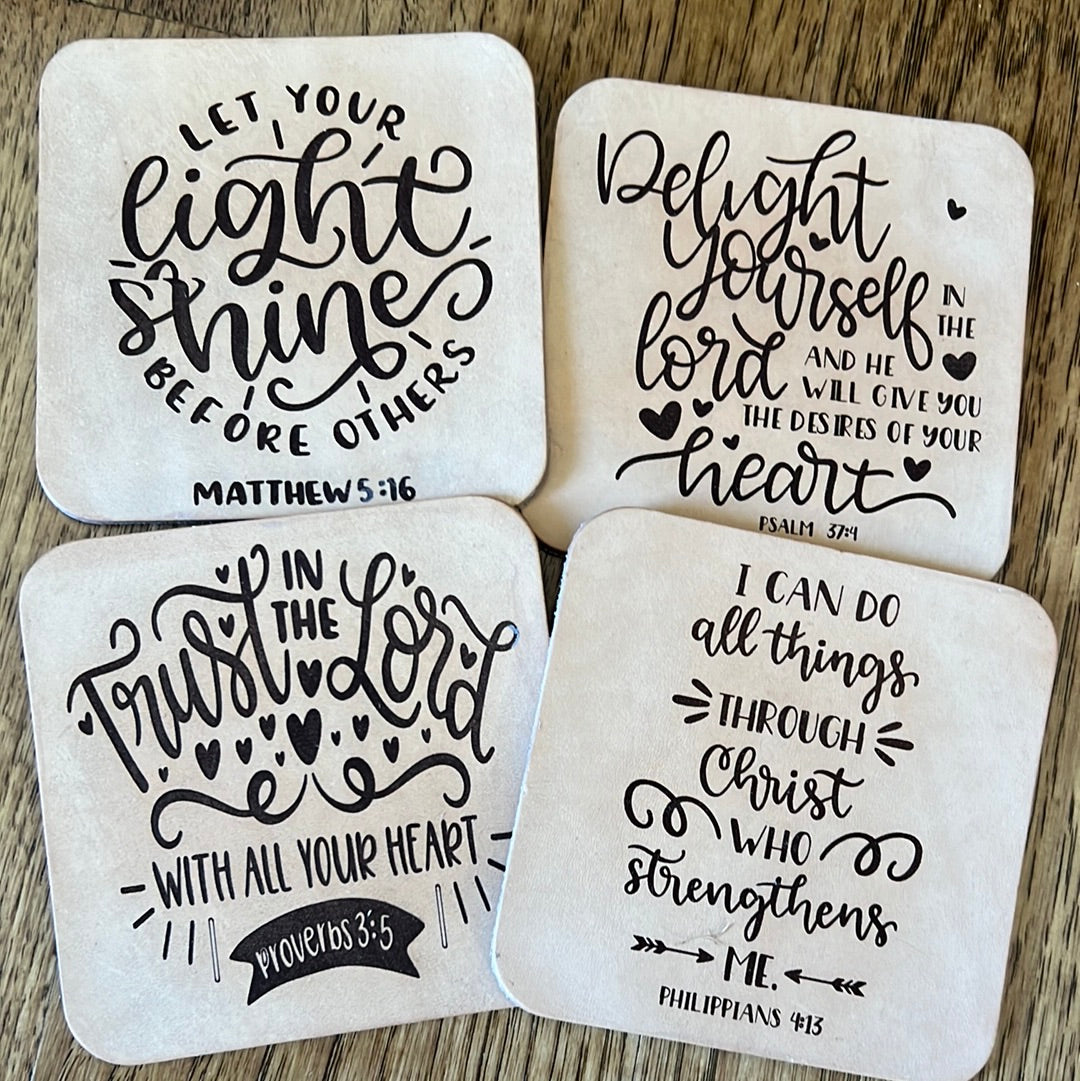 LET YOUR
light
shine
BEFORE OTHERS
MATTHEW 5:16
Delight
yourself IN
THE
lord AND HE
WILL GIVE YOU
THE DESIRES OF YOUR
heart
PSALM 37:4
Trust IN
THE Lord
WITH ALL YOUR HEART
proverbs 3:5
I CAN DO
all things
THROUGH
Christ
WHO
strengthens
ME.
PHILIPPIANS 4:13